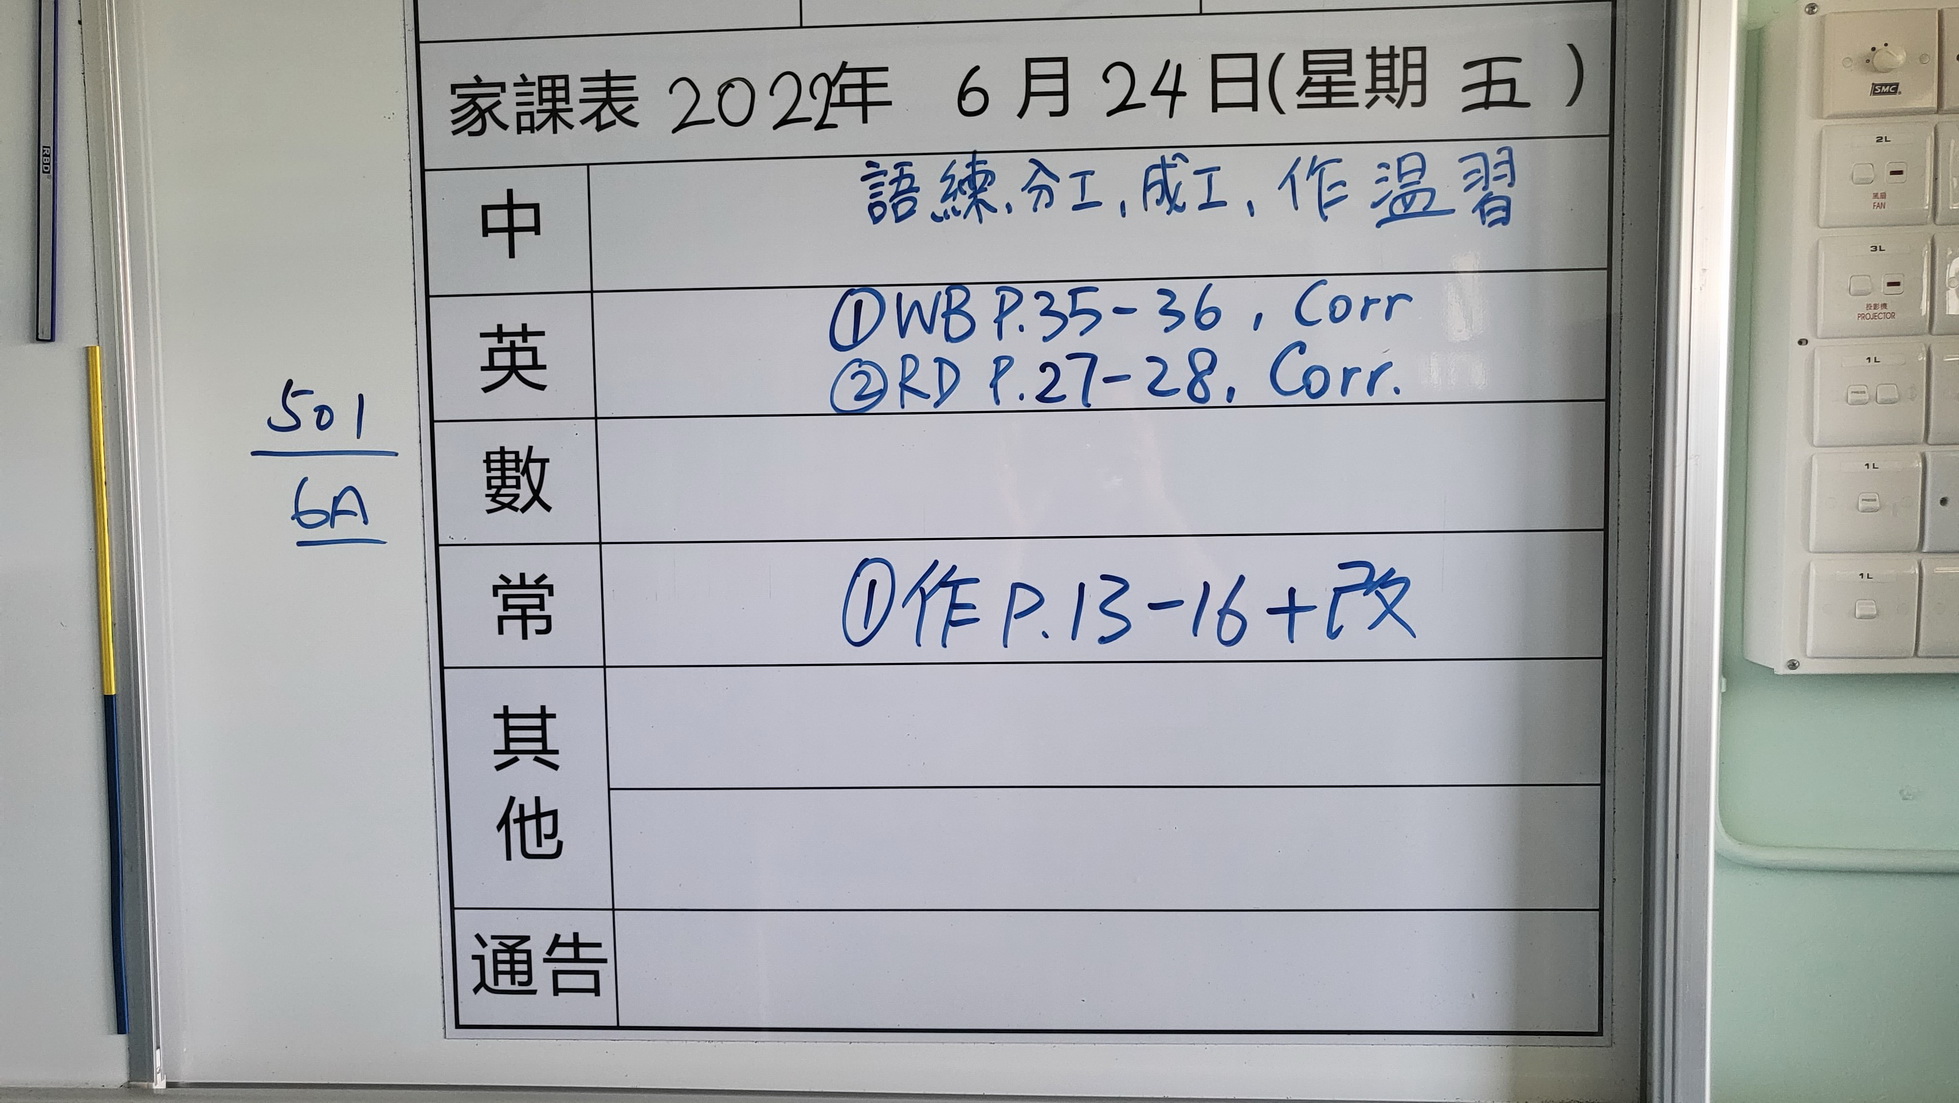 家課表 2022年 6月24日(星期五)
中 語練、分工、成工、作温習
英 ①WB P.35-36, Corr
②RD P.27-28, Corr.
501
6A
數
常 ①作 P.13-16+改
其他
通告
RBD
SMC
2L
風扇
FAN
3L
投影機
PROJECTOR
1L
1L
1L